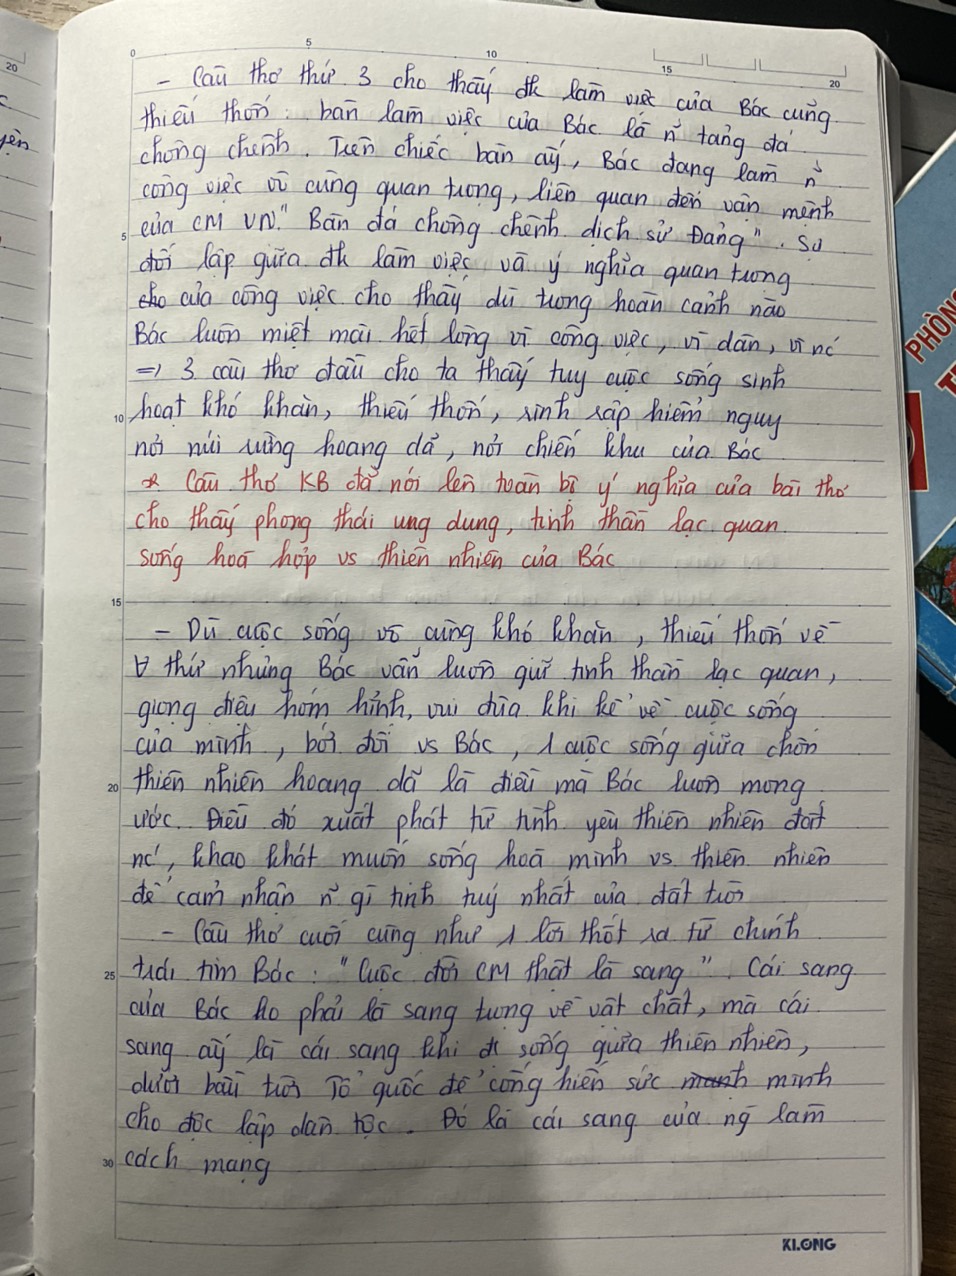 0 5 10 15 20
20
- Câu thơ thứ 3 cho thấy đk làm việc của Bác cũng
thiếu thốn: bàn làm việc của Bác là n~ tảng đá
chông chênh. Trên chiếc bàn ấy, Bác đang làm n~
công việc vô cùng quan trọng, liên quan đến vận mệnh
5 của CM VN." Bàn đá chông chênh dịch sử Đảng". Sự
đối lập giữa đk làm việc và ý nghĩa quan trọng
của công việc cho thấy dù trong hoàn cảnh nào
Bác luôn miệt mài hết lòng vì công việc, vì dân, vì nc'
=> 3 câu thơ đầu cho ta thấy tuy cuộc sống sinh
10 hoạt khó khăn, thiếu thốn, rình rập hiểm nguy
nơi núi rừng hoang dã, nơi chiến khu của Bác
* Câu thơ KB đã nói lên toàn bộ ý nghĩa của bài thơ
cho thấy phong thái ung dung, tinh thần lạc quan
sống hoà hợp vs thiên nhiên của Bác
15
- Dù cuộc sống vô cùng khó khăn, thiếu thốn về
∀ thứ nhưng Bác vẫn luôn giữ tinh thần lạc quan,
giọng điệu hóm hỉnh, vui đùa khi kể về cuộc sống
của mình, bởi đối vs Bác, 1 cuộc sống giữa chốn
20 thiên nhiên hoang dã là điều mà Bác luôn mong
ước. Điều đó xuất phát từ tình yêu thiên nhiên đất
nc', khao khát muốn sống hoà mình vs thiên nhiên
để cảm nhận n~ gì tinh tuý nhất của đất trời
- Câu thơ cuối cùng như 1 lời thốt ra từ chính
25 trái tim Bác: "Cuộc đời CM thật là sang". Cái sang
của Bác ko phải là sang trọng về vật chất, mà cái
sang ấy là cái sang khi đc sống giữa thiên nhiên,
dưới bầu trời Tổ quốc để cống hiến sức mình
cho độc lập dân tộc. Đó là cái sang của ng làm
30 cách mạng
KLONG
PHÒN